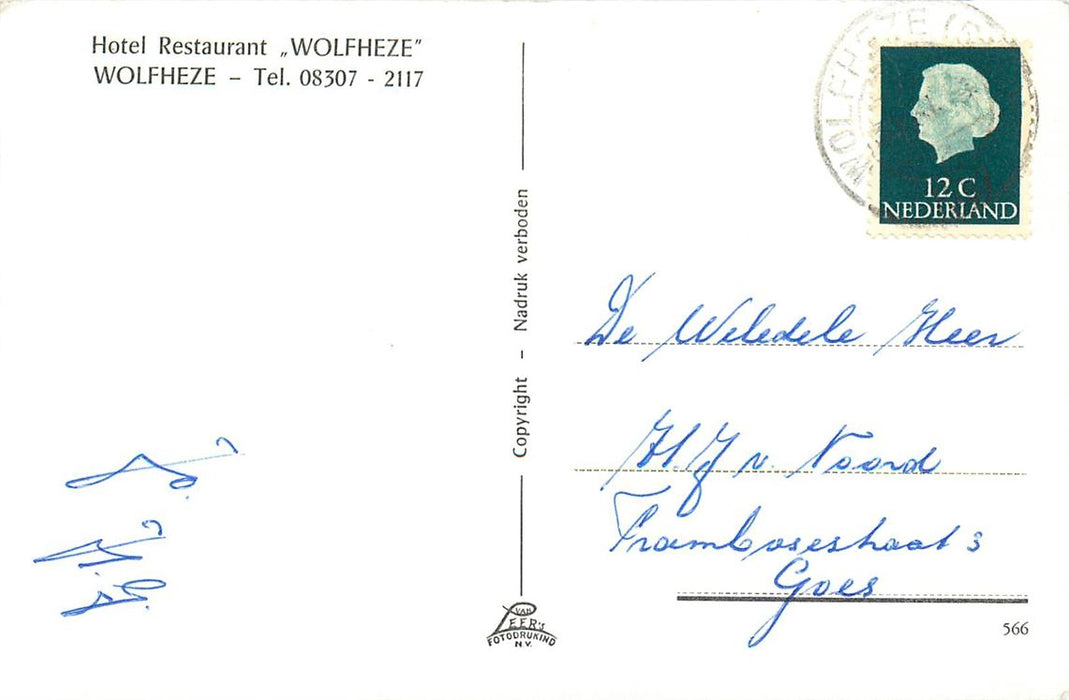 Hotel Restaurant „WOLFHEZE”
WOLFHEZE – Tel. 08307 - 2117
Copyright - Nadruk verboden
WOLFHEZE
12 C
NEDERLAND
De Weledele Heer
H.J. v. Noord
Frambosestraat 3
Goes
VAN
LEER'S
FOTODRUKIND
N.V.
566